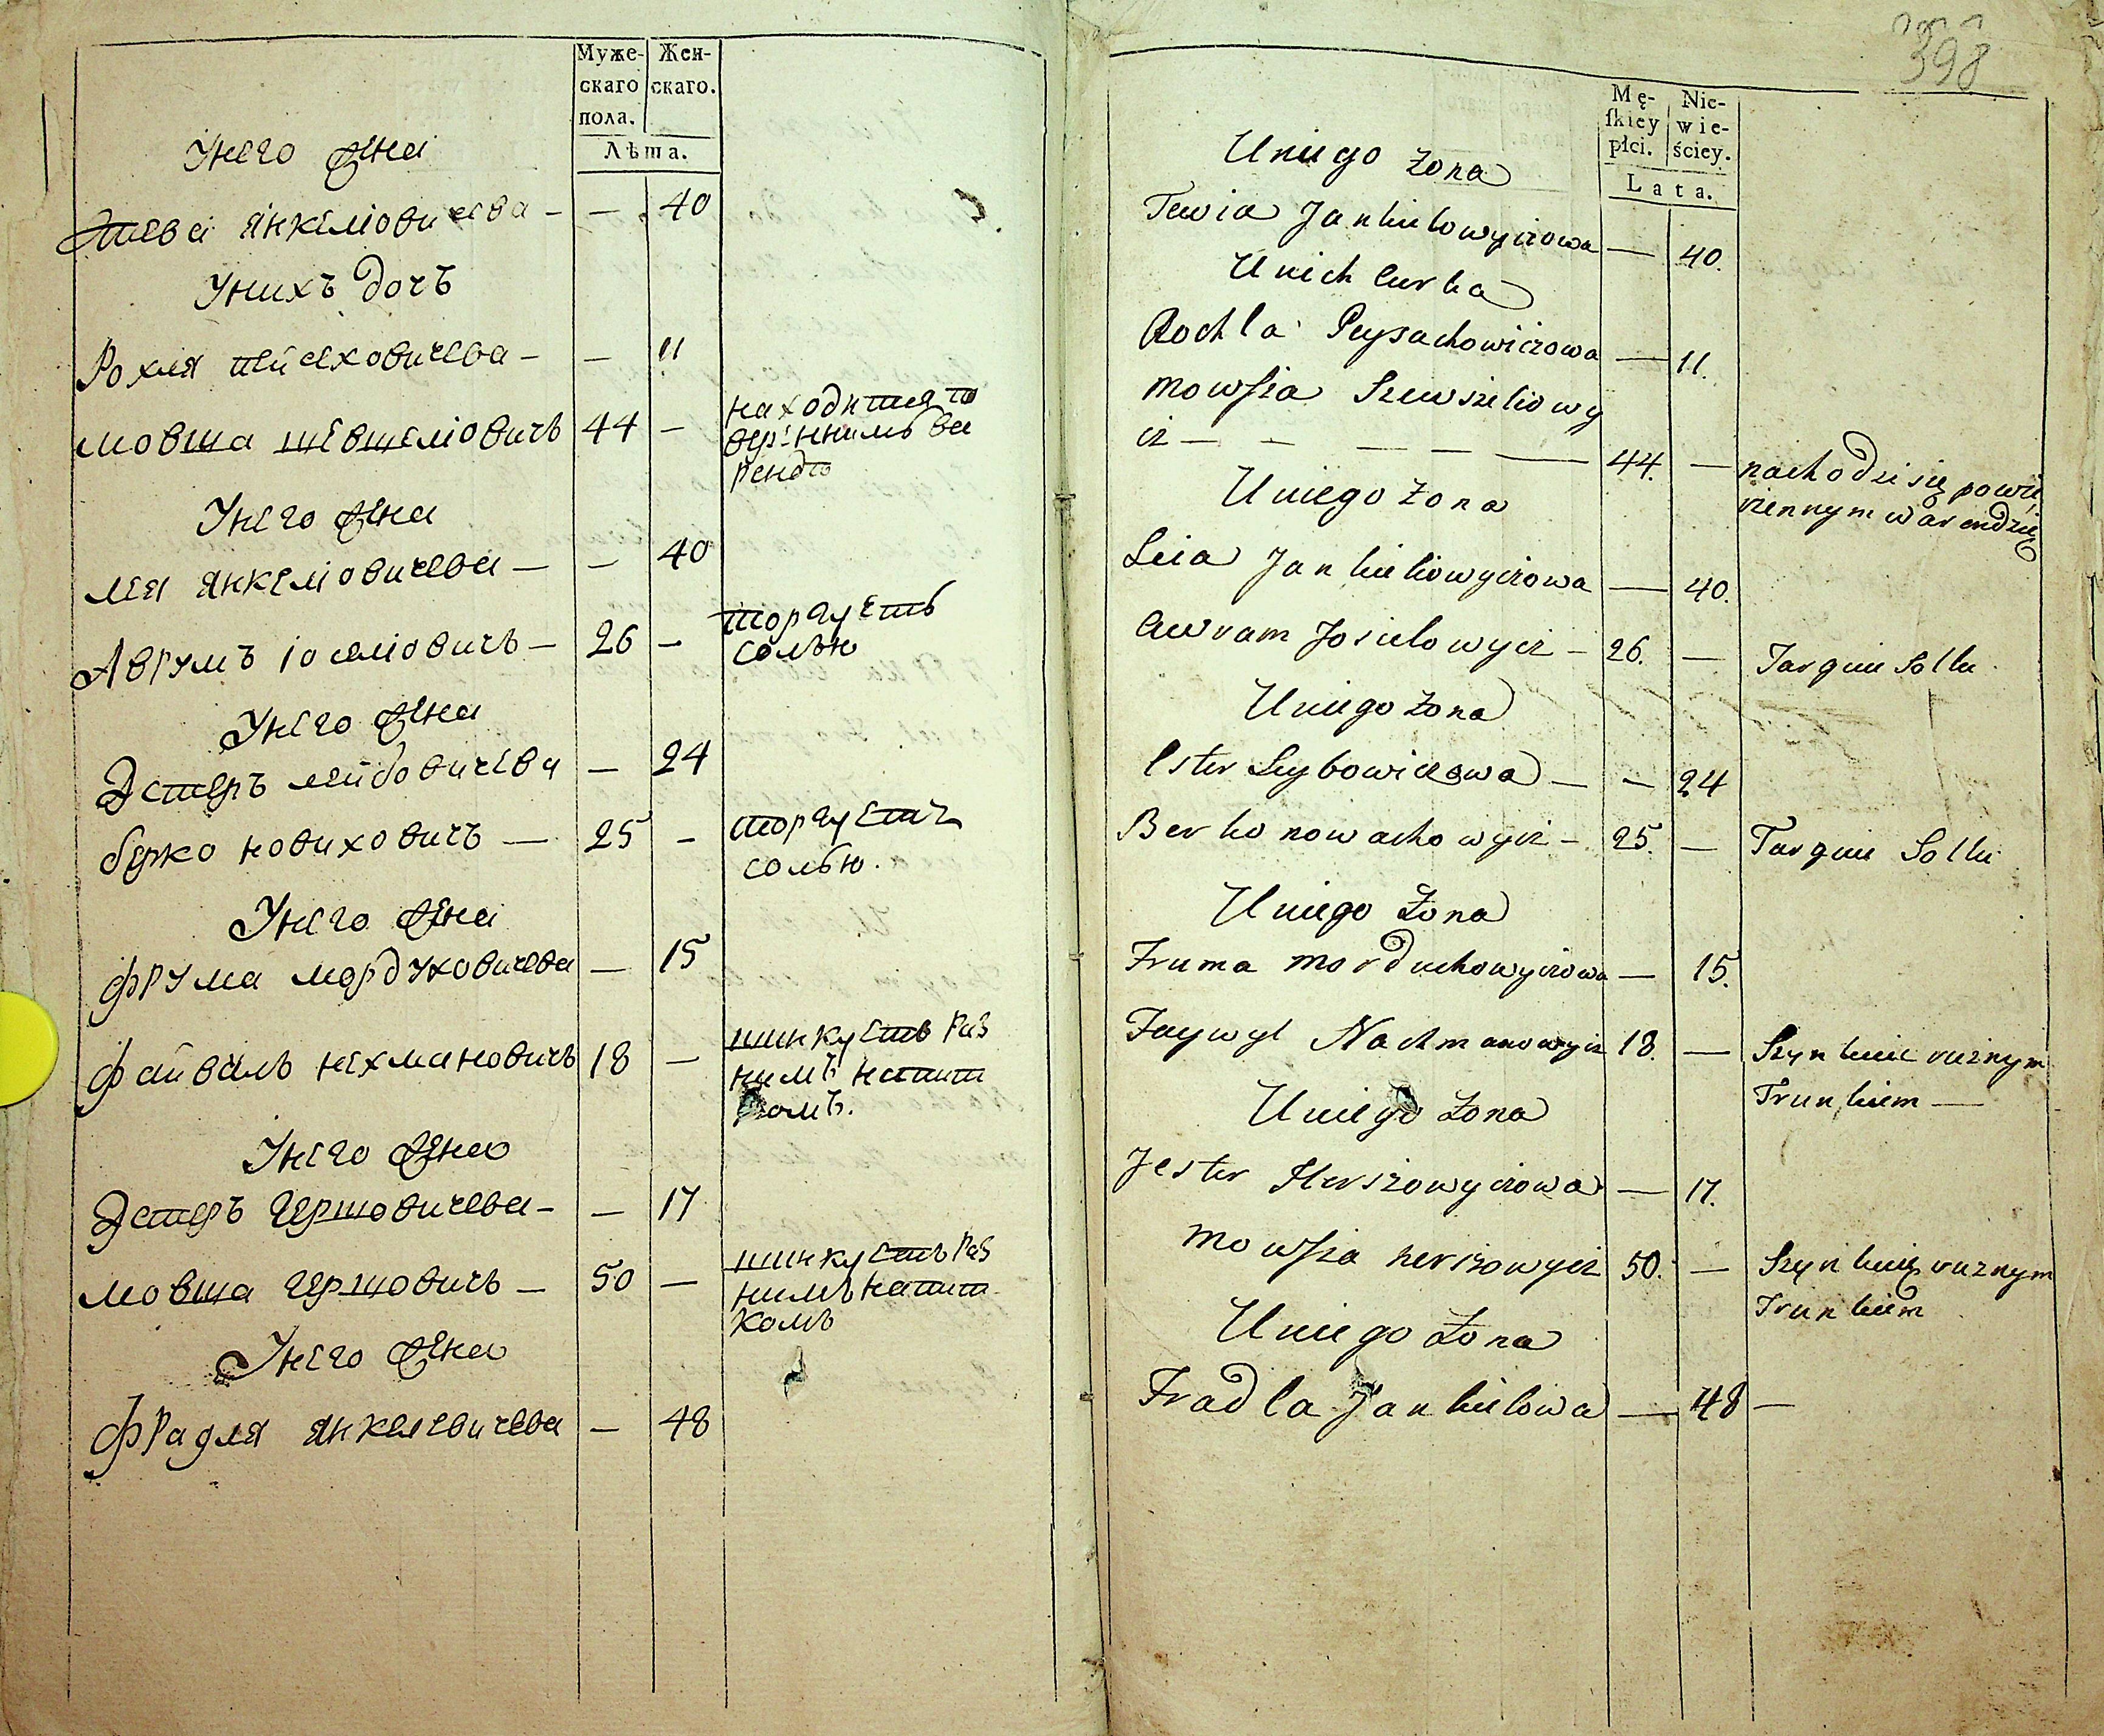 Муже-
скаго
пола.
Жен-
скаго.
Лѣта.
Унего жена
Тева Янкеліовичева — — 40
Унихъ дочь
Рохля Пейсеховичева — — 11
Мовша Шевшеліовичъ 44 —
находится по
вереннимъ ва
ренде
Унего жена
Лея Янкеліовичева — — 40
Аврумъ Іоселіовичъ — 26 —
торгуетъ
солью
Унего жена
Эстеръ Лейбовичева — 24
Берко Новиховичъ — 25 —
торгуетъ
солью.
Унего жена
Фрума Мордуховичева — 15
Файвель Нехмановичъ 18 —
шинкуетъ раз
нимъ напит
комъ.
Унего жена
Эстеръ Гершовичева — — 17
Мовша Гершовичъ — 50 —
шинкуетъ раз
нимъ напит
комъ
Унего жена
Фрадля Янкелевичева — 48
398
Mę-
skiey
płci.
Nie-
wie-
ściey.
Lata.
Uniego żona
Tewia Jankielowyczowa — 40.
Unich Curka
Rochla Peysachowiczowa — 11.
Mowsza Szewszeliowy
cz — — — — — 44. —
nachodzi się powie
rzennym w arendzie
Uniego żona
Leia Jankieliowyczowa — 40.
Awram Josielowycz — 26. — Targuie Sollu
Uniego żona
Ester Leybowiczowa — — 24
Berko nowachowycz — 25. — Targuie Sollu
Uniego żona
Fruma Morduchowyczowa — 15.
Faywyl Nachmanowycz 18. — Szynkuie rużnym
Trunkiem —
Uniego żona
Jester Herszowyczowa — 17.
Mowsza herszowycz 50. — Szynkuię rużnym
Trunkiem
Uniego żona
Fradla Jankielowa — 48 —